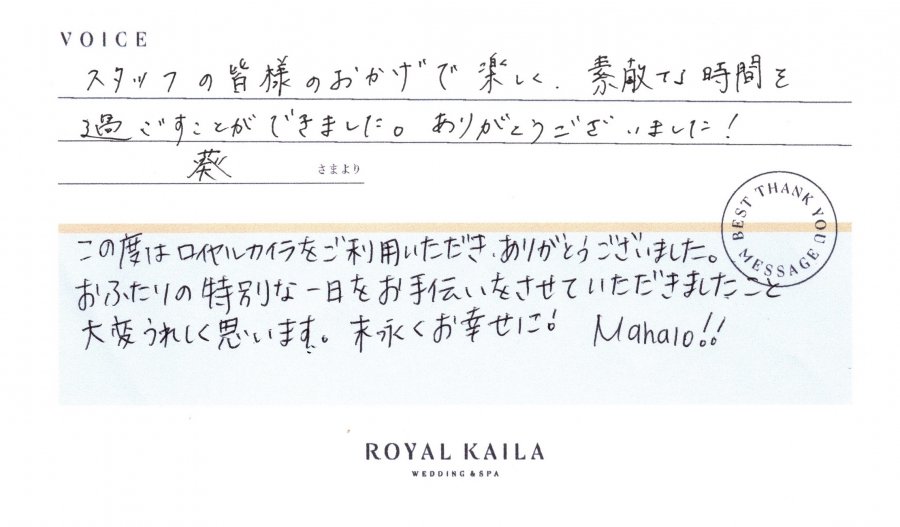 VOICE
スタッフの皆様のおかげで楽しく、素敵な時間を
過ごすことができました。ありがとうございました!
葵 さまより
BEST THANK YOU MESSAGE
この度はロイヤルカイラをご利用いただき、ありがとうございました。
おふたりの特別な一日をお手伝いをさせていただきましたこと
大変うれしく思います。末永くお幸せに! Mahalo!!
ROYAL KAILA
WEDDING & SPA